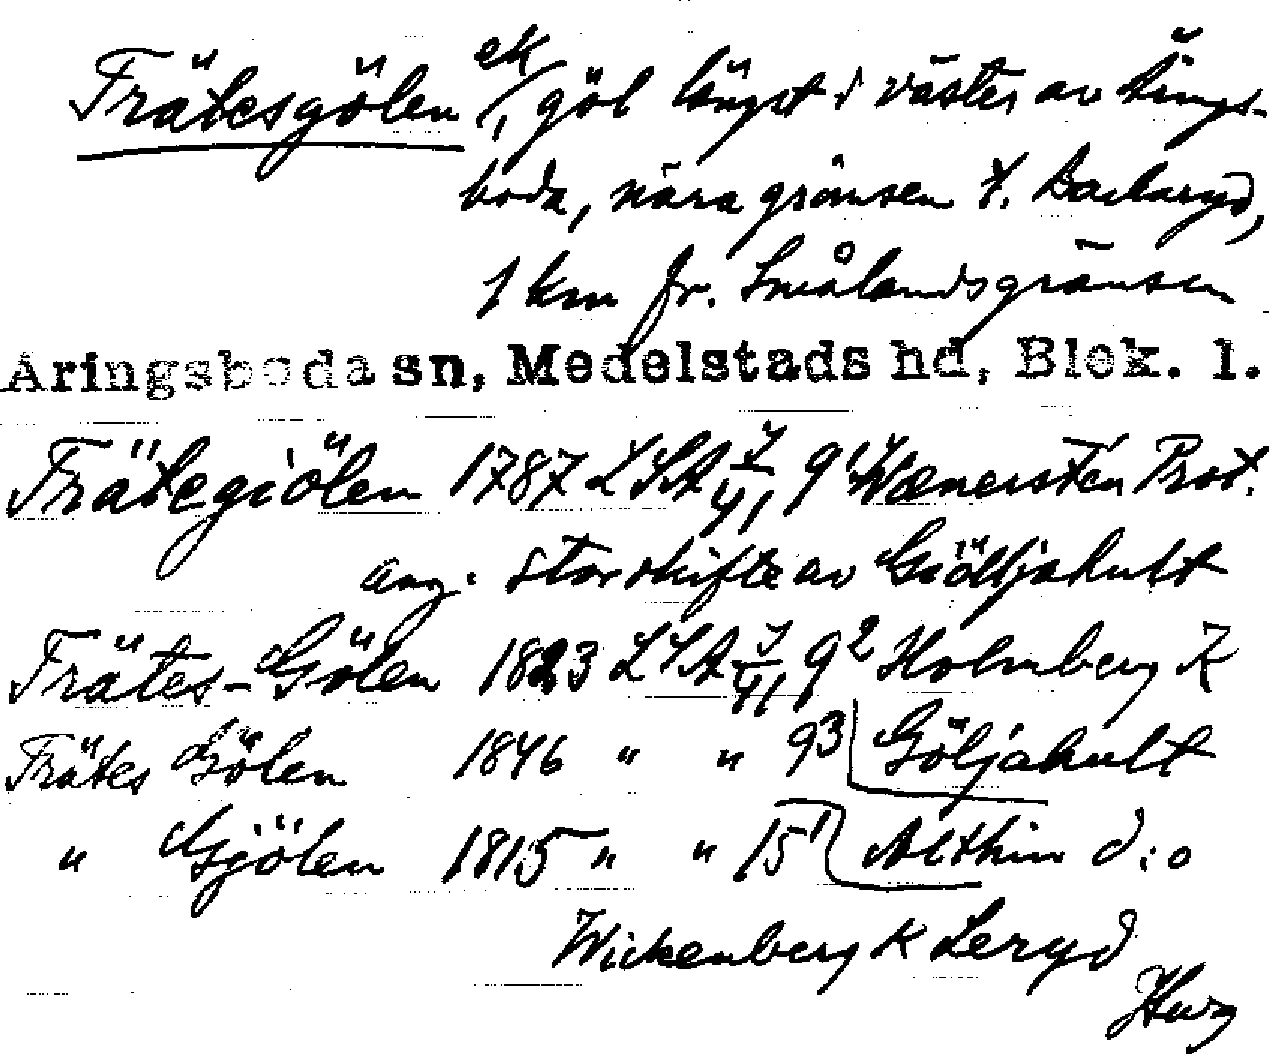 Trätesgölen ek/, göl längst i väster av Åings-
boda, nära gränsen t. Backaryd,
1 km fr. Smålandsgränsen
Aringsboda sn, Medelstads hd, Blek. l.
Trätegiölen 1787 LSA 9¹ Wænersten Prot.
ang. storskifte av Giölljahult
Trätes-Gölen 1823 LSA 9² Holmberg K
Trätes Gölen 1846 " " 93 Göljahult
" Gjölen 1815 " " 15¹ Althin d:o
Wickenberg K Leryd